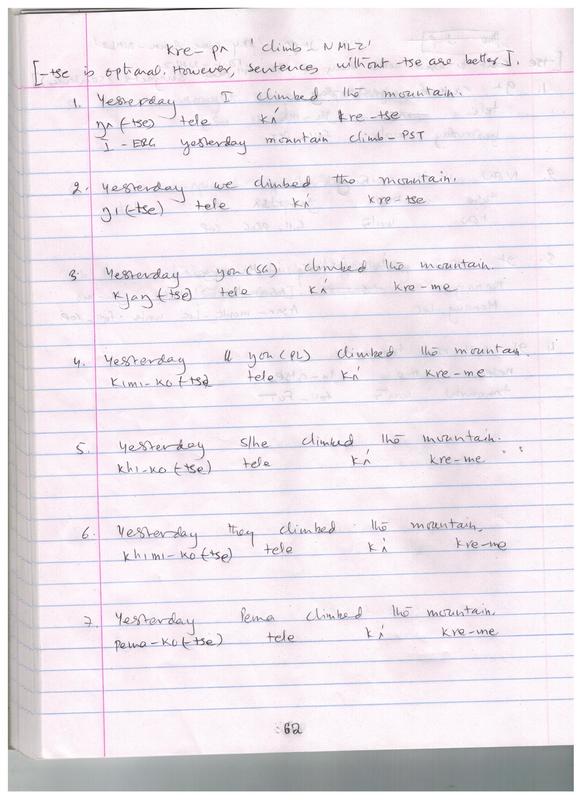 Kre-pʌ 'climb NMLZ'
[-tse is optional. However, sentences without -tse are better].
1. Yesterday I climbed the mountain.
ŋʌ (-tse) tele kʌ́ kre-tse
I-ERG yesterday mountain climb-PST
2. Yesterday we climbed the mountain.
ŋı (-tse) tele kʌ́ kre-tse
3. Yesterday you (SG) climbed the mountain.
kjaŋ (-tse) tele kʌ́ kre-me
4. Yesterday you (PL) climbed the mountain.
kımı-ko (-tse) tele kʌ́ kre-me
5. Yesterday s/he climbed the mountain.
khı-ko (-tse) tele kʌ́ kre-me
6. Yesterday they climbed the mountain.
khımı-ko (-tse) tele kʌ́ kre-me
7. Yesterday Pema climbed the mountain.
pema-ko (-tse) tele kʌ́ kre-me
62